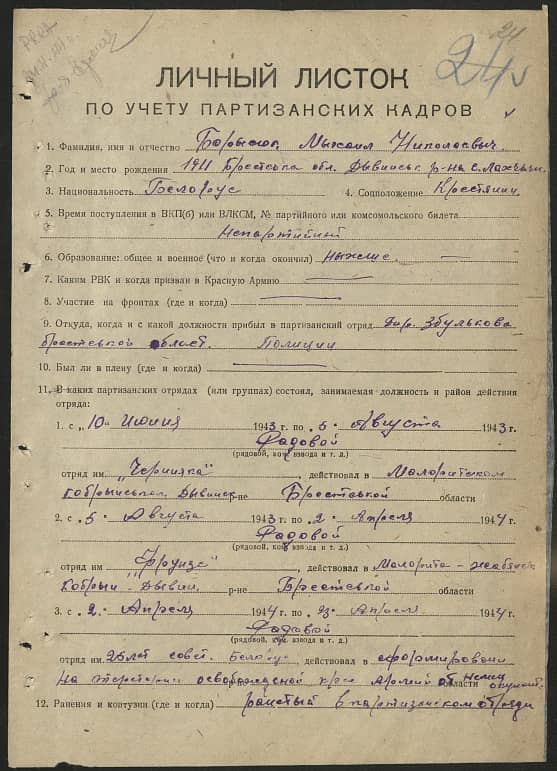 24
24
ЛИЧНЫЙ ЛИСТОК
ПО УЧЕТУ ПАРТИЗАНСКИХ КАДРОВ
1. Фамилия, имя и отчество Михаил Николаевич
2. Год и место рождения 1911 Брестська обл. Дывинськ р-на с.
3. Национальность Белорус 4. Соцположение Крестянин
5. Время поступления в ВКП(б) или ВЛКСМ, № партийного или комсомольского билета
Непартийний
6. Образование: общее и военное (что и когда окончил) ныжше
7. Каким РВК и когда призван в Красную Армию
8. Участие на фронтах (где и когда)
9. Откуда, когда и с какой должности прибыл в партизанский отряд Збулькова
Брестськой област. Полиции
10. Был ли в плену (где и когда)
11. В каких партизанских отрядах (или группах) состоял, занимаемая должность и район действия
отряда:
1. с „10" Июния 1943 г. по „5" Августа 1943 г.
Радовой
(рядовой, ком. взвода и т. д.)
отряд им. "Черняка" , действовал в Малоритском
Кобрыньском Дывинск р-не Брестськой области
2. с „5" Августа 1943 г. по „2" Апреля 1944 г.
Радовой
(рядовой, ком. взвода и т. д.)
отряд им. "Фрунзе" , действовал в Малорита - Жабинк
Кобрын - Дывин р-не Брестськой области
3. с „2" Апреля 1944 г. по „23" Апреля 1944 г.
Радовой
(рядовой, ком. взвода и т. д.)
отряд им. 25 лет совет. Белорус , действовал в сформировани
на територии освобожденой крас Армией от немец области окупант.
12. Ранения и контузии (где и когда) в партизанском отряди